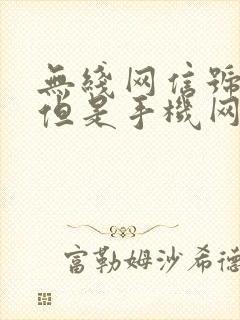 無綫网信號
但是手機网
富勒姆沙希德